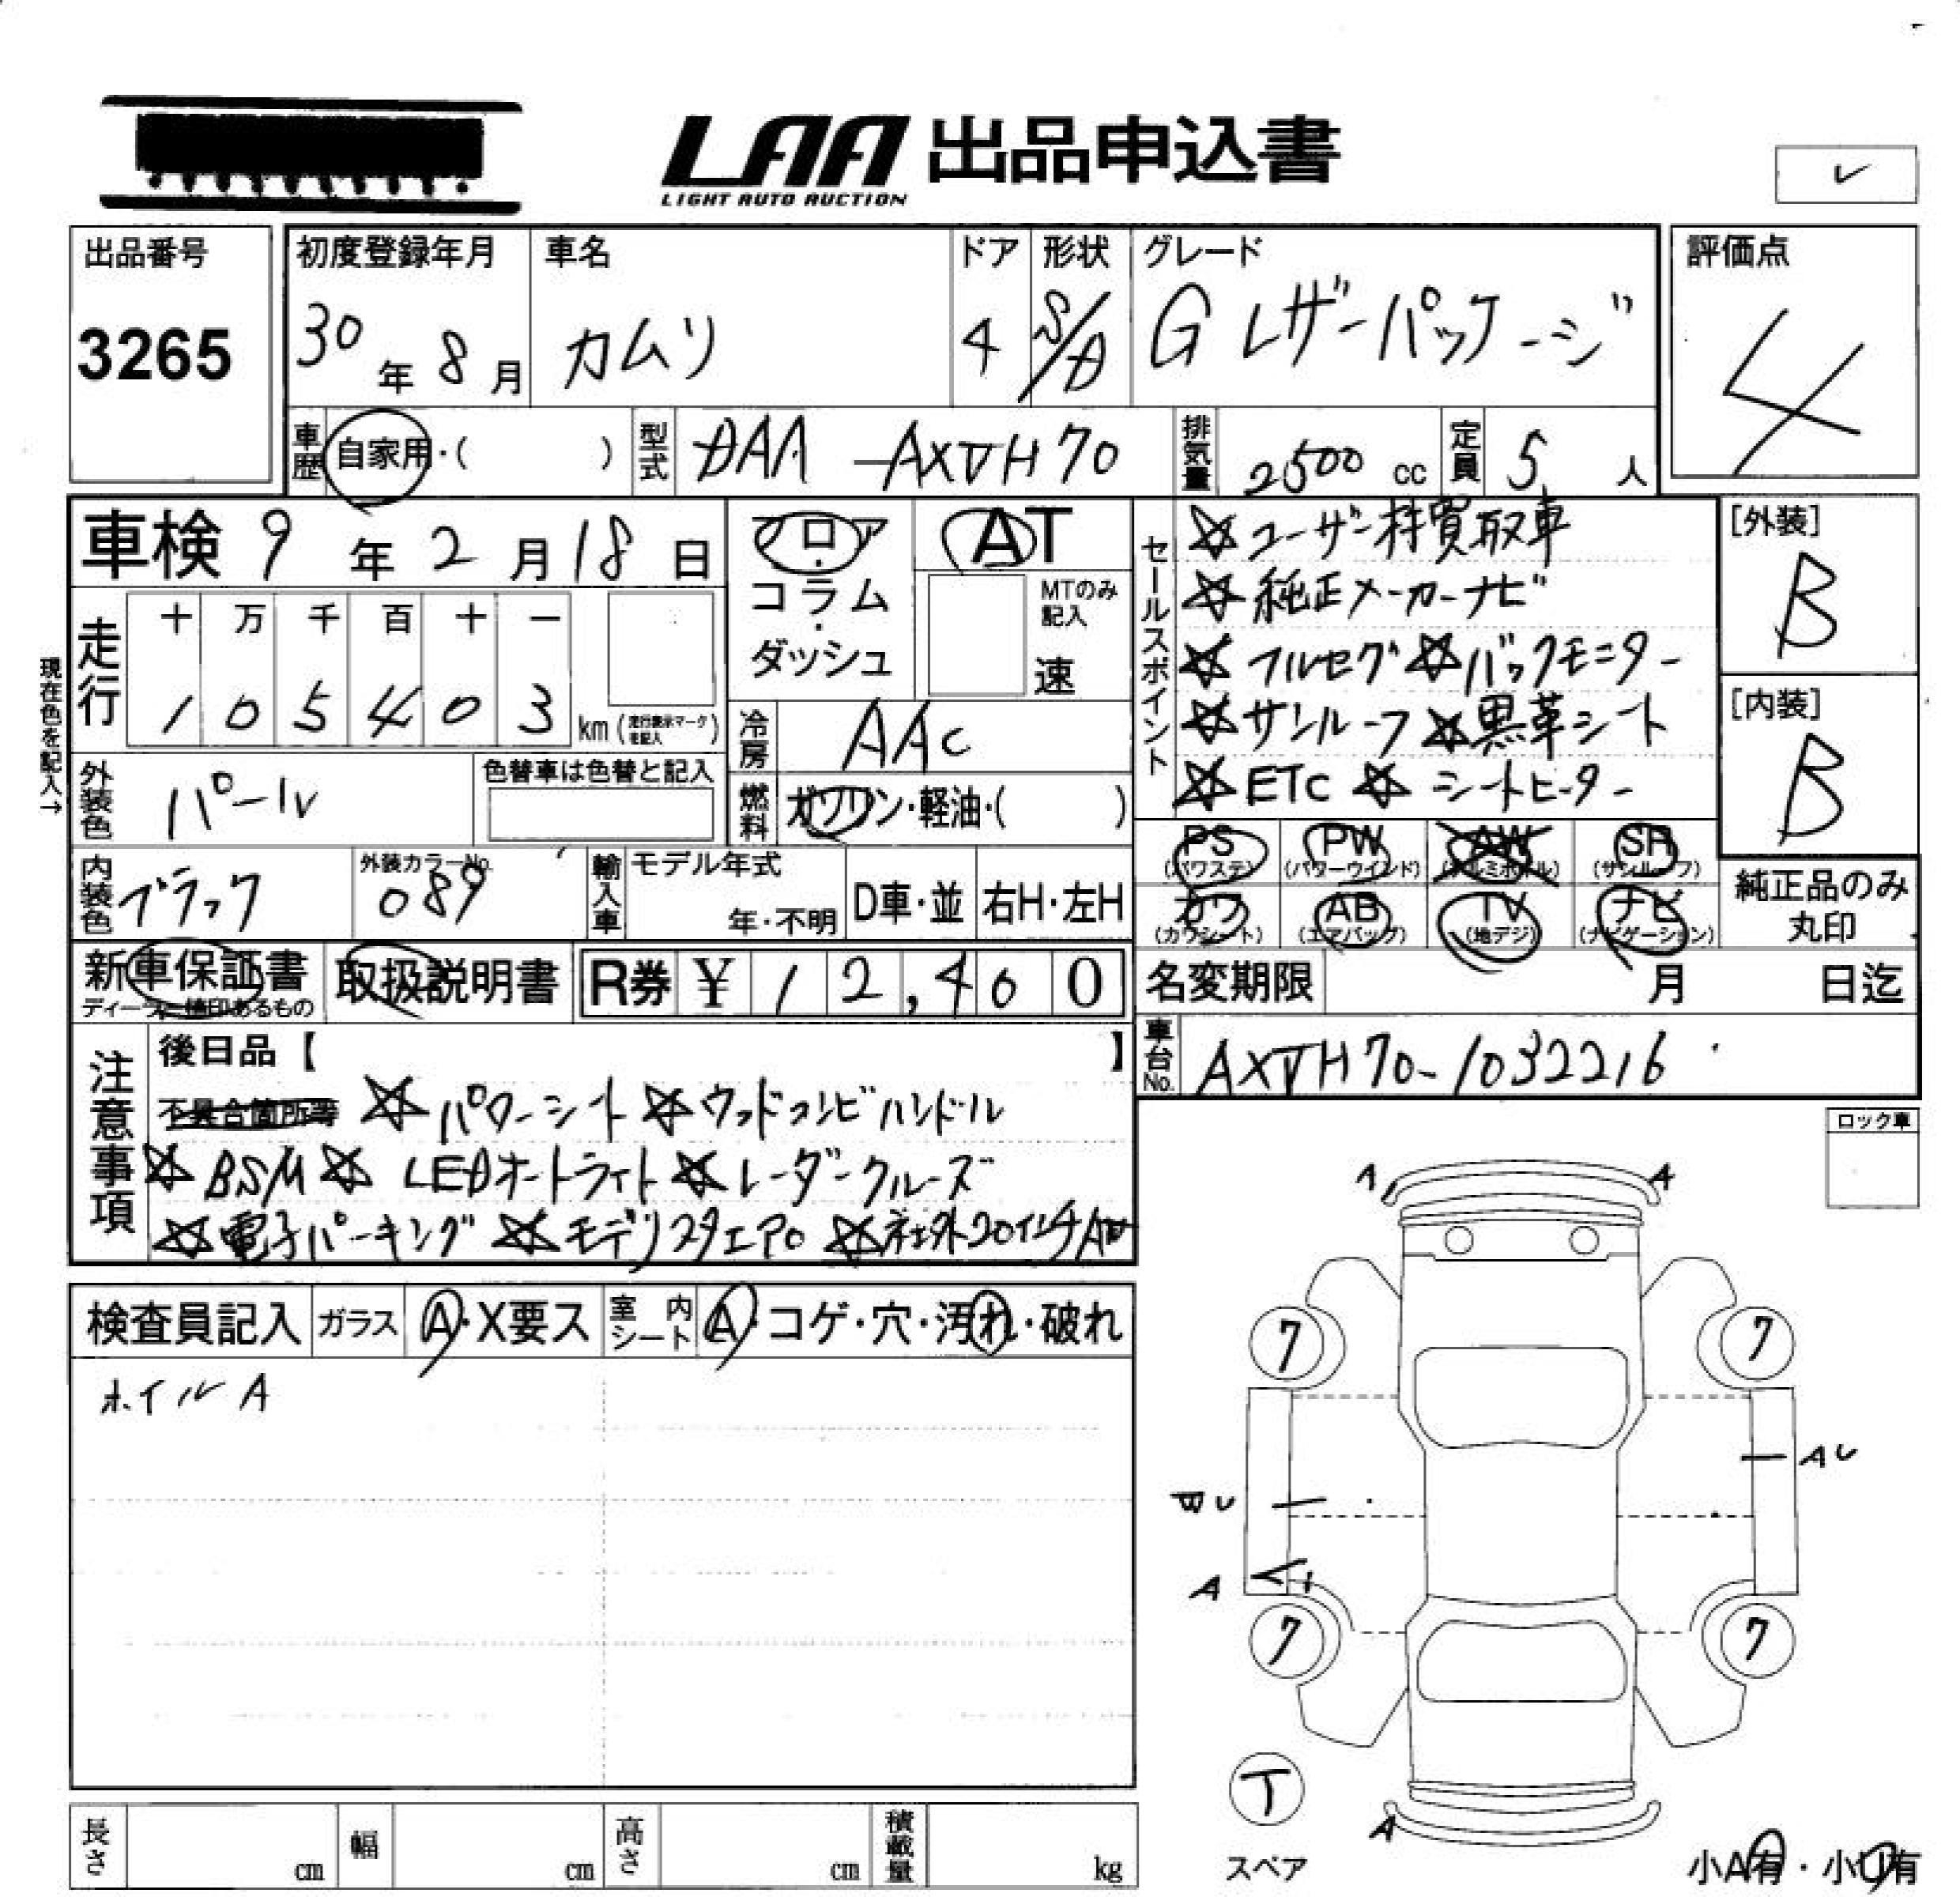 LAA 出品申込書
LIGHT AUTO AUCTION
出品番号
3265
初度登録年月
30年 8月
車名
カムリ
ドア
4
形状
S/D
グレード
G レザーパッケージ
評価点
4
車歴 自家用・( )
型式 DAA-AXVH70
排気量 2500 cc
定員 5 人
車検 9年 2月 18日
フロア・コラム・ダッシュ
AT
MTのみ記入
速
現在色を記入→
走行
十 万 千 百 十 一
1 0 5 4 0 3
km (走行表示マークを記入)
冷房 AAC
外装色 パール
色替車は色替と記入
燃料 ガソリン・軽油・( )
内装色 ブラック
外装カラーNo. 089
輸入車 モデル年式
年・不明
D車・並
右H・左H
セールスポイント
☆ユーザー様買取車
☆純正メーカーナビ
☆フルセグ ☆バックモニター
☆サンルーフ ☆黒革シート
☆ETC ☆シートヒーター
[外装]
B
[内装]
B
PS (パワステ)
PW (パワーウインド)
AW (アルミホイル)
SR (サンルーフ)
カワ (カワシート)
AB (エアバッグ)
TV (地デジ)
ナビ (ナビゲーション)
純正品のみ丸印
新車保証書
ディーラー確印あるもの
取扱説明書
R券 ¥12,460
名変期限 月 日迄
車台No. AXVH70-1032216
注意事項
後日品【 】
不具合箇所等 ☆パワーシート ☆ウッドコンビハンドル
☆BSM ☆LEDオートライト ☆レーダークルーズ
☆電子パーキング ☆モデリスタエアロ ☆社外20インチAW
検査員記入
ガラス A・X要ス
室内シート A・コゲ・穴・汚れ・破れ
ホイルA
ロック車
A A
7 7
AU
BU
A
7 7
T
スペア
A
小A有・小U有
長さ cm
幅 cm
高さ cm
積載量 kg